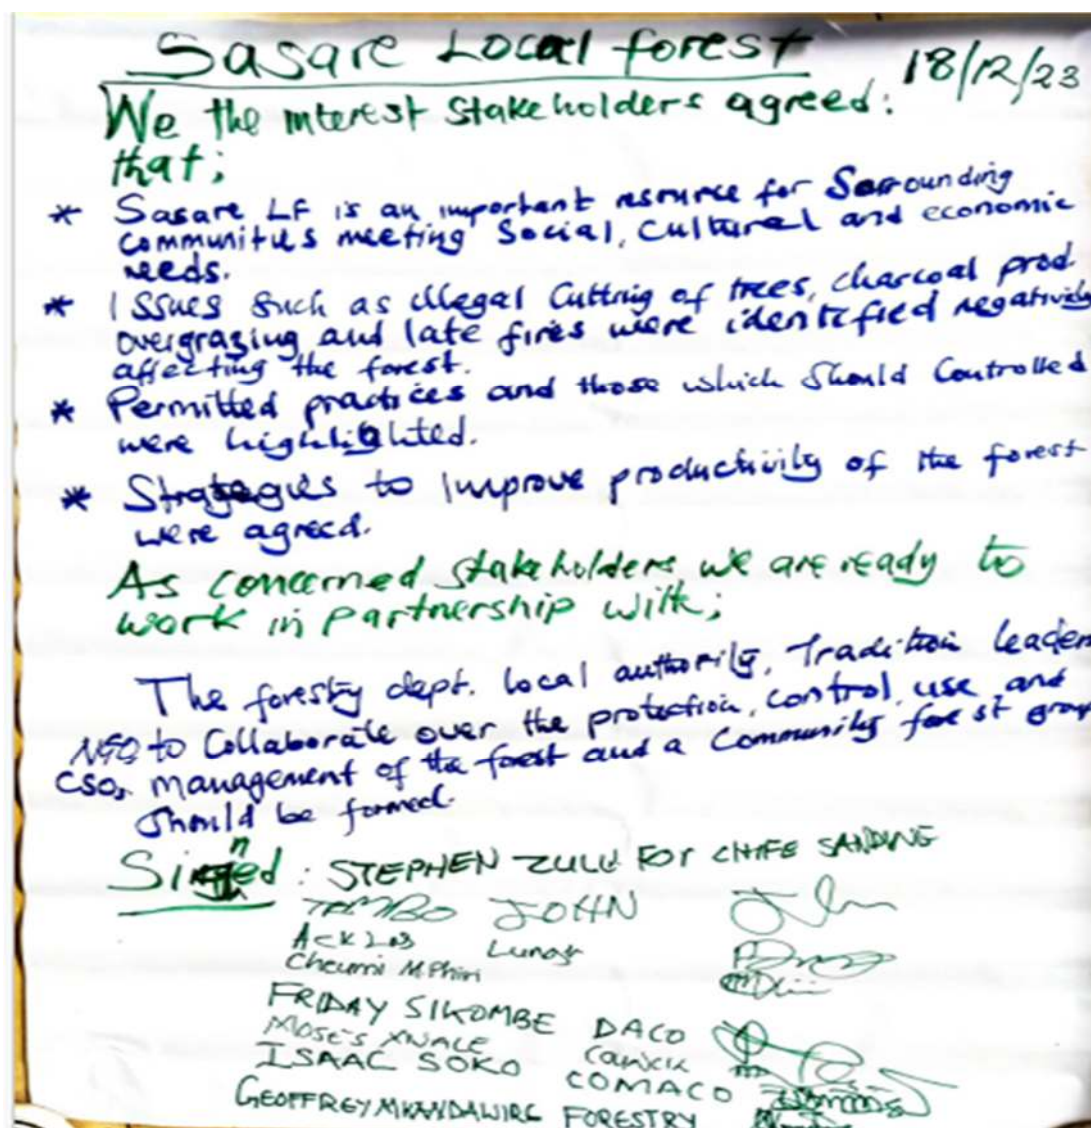 Sasare Local forest 18/12/23
We the interest stakeholders agreed:
that;
* Sasare LF is an important resource for Sorrounding
communities meeting Social, Cultural and economic
needs.
* Issues such as illegal Cutting of trees, charcoal prod.
overgrazing and late fires were identified negatively
affecting the forest.
* Permitted practices and those which should Controlled
were highlighted.
* Strategies to improve productivity of the forest
were agreed.
As concerned stakeholders, we are ready to
work in partnership with;
The forestry dept. local authority, Tradition leaders
NGO to Collaborate over the protection, control, use, and
CSO, management of the forest and a Community forest group
should be formed.
Signed: STEPHEN ZULU FOR CHIFE SANDWE
TEMBO JOHN
Phiri
FRIDAY SIKOMBE DACO
MOSES
ISAAC SOKO COMACO
GEOFFREY MKANDAWIRE FORESTRY